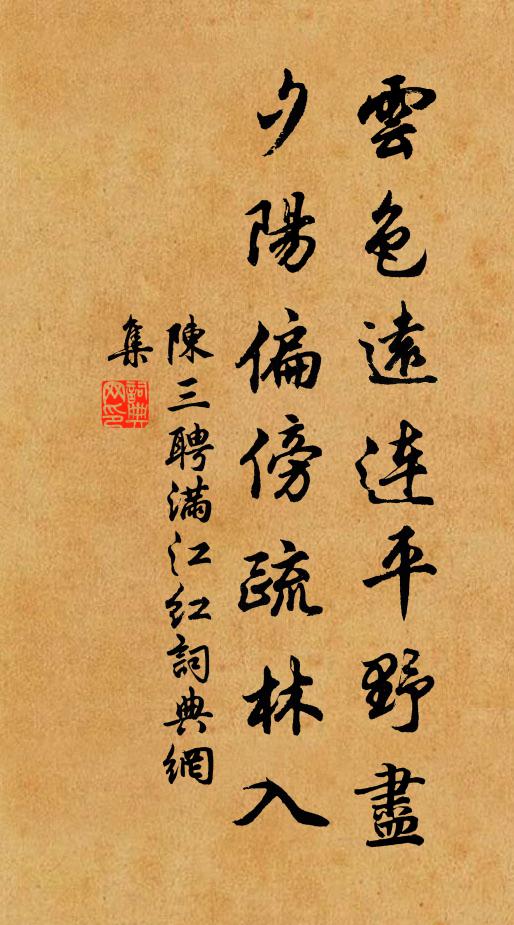 雲色遠連平野盡
夕陽偏傍疏林入
陳三聘滿江紅詞典網
集
詞典網印